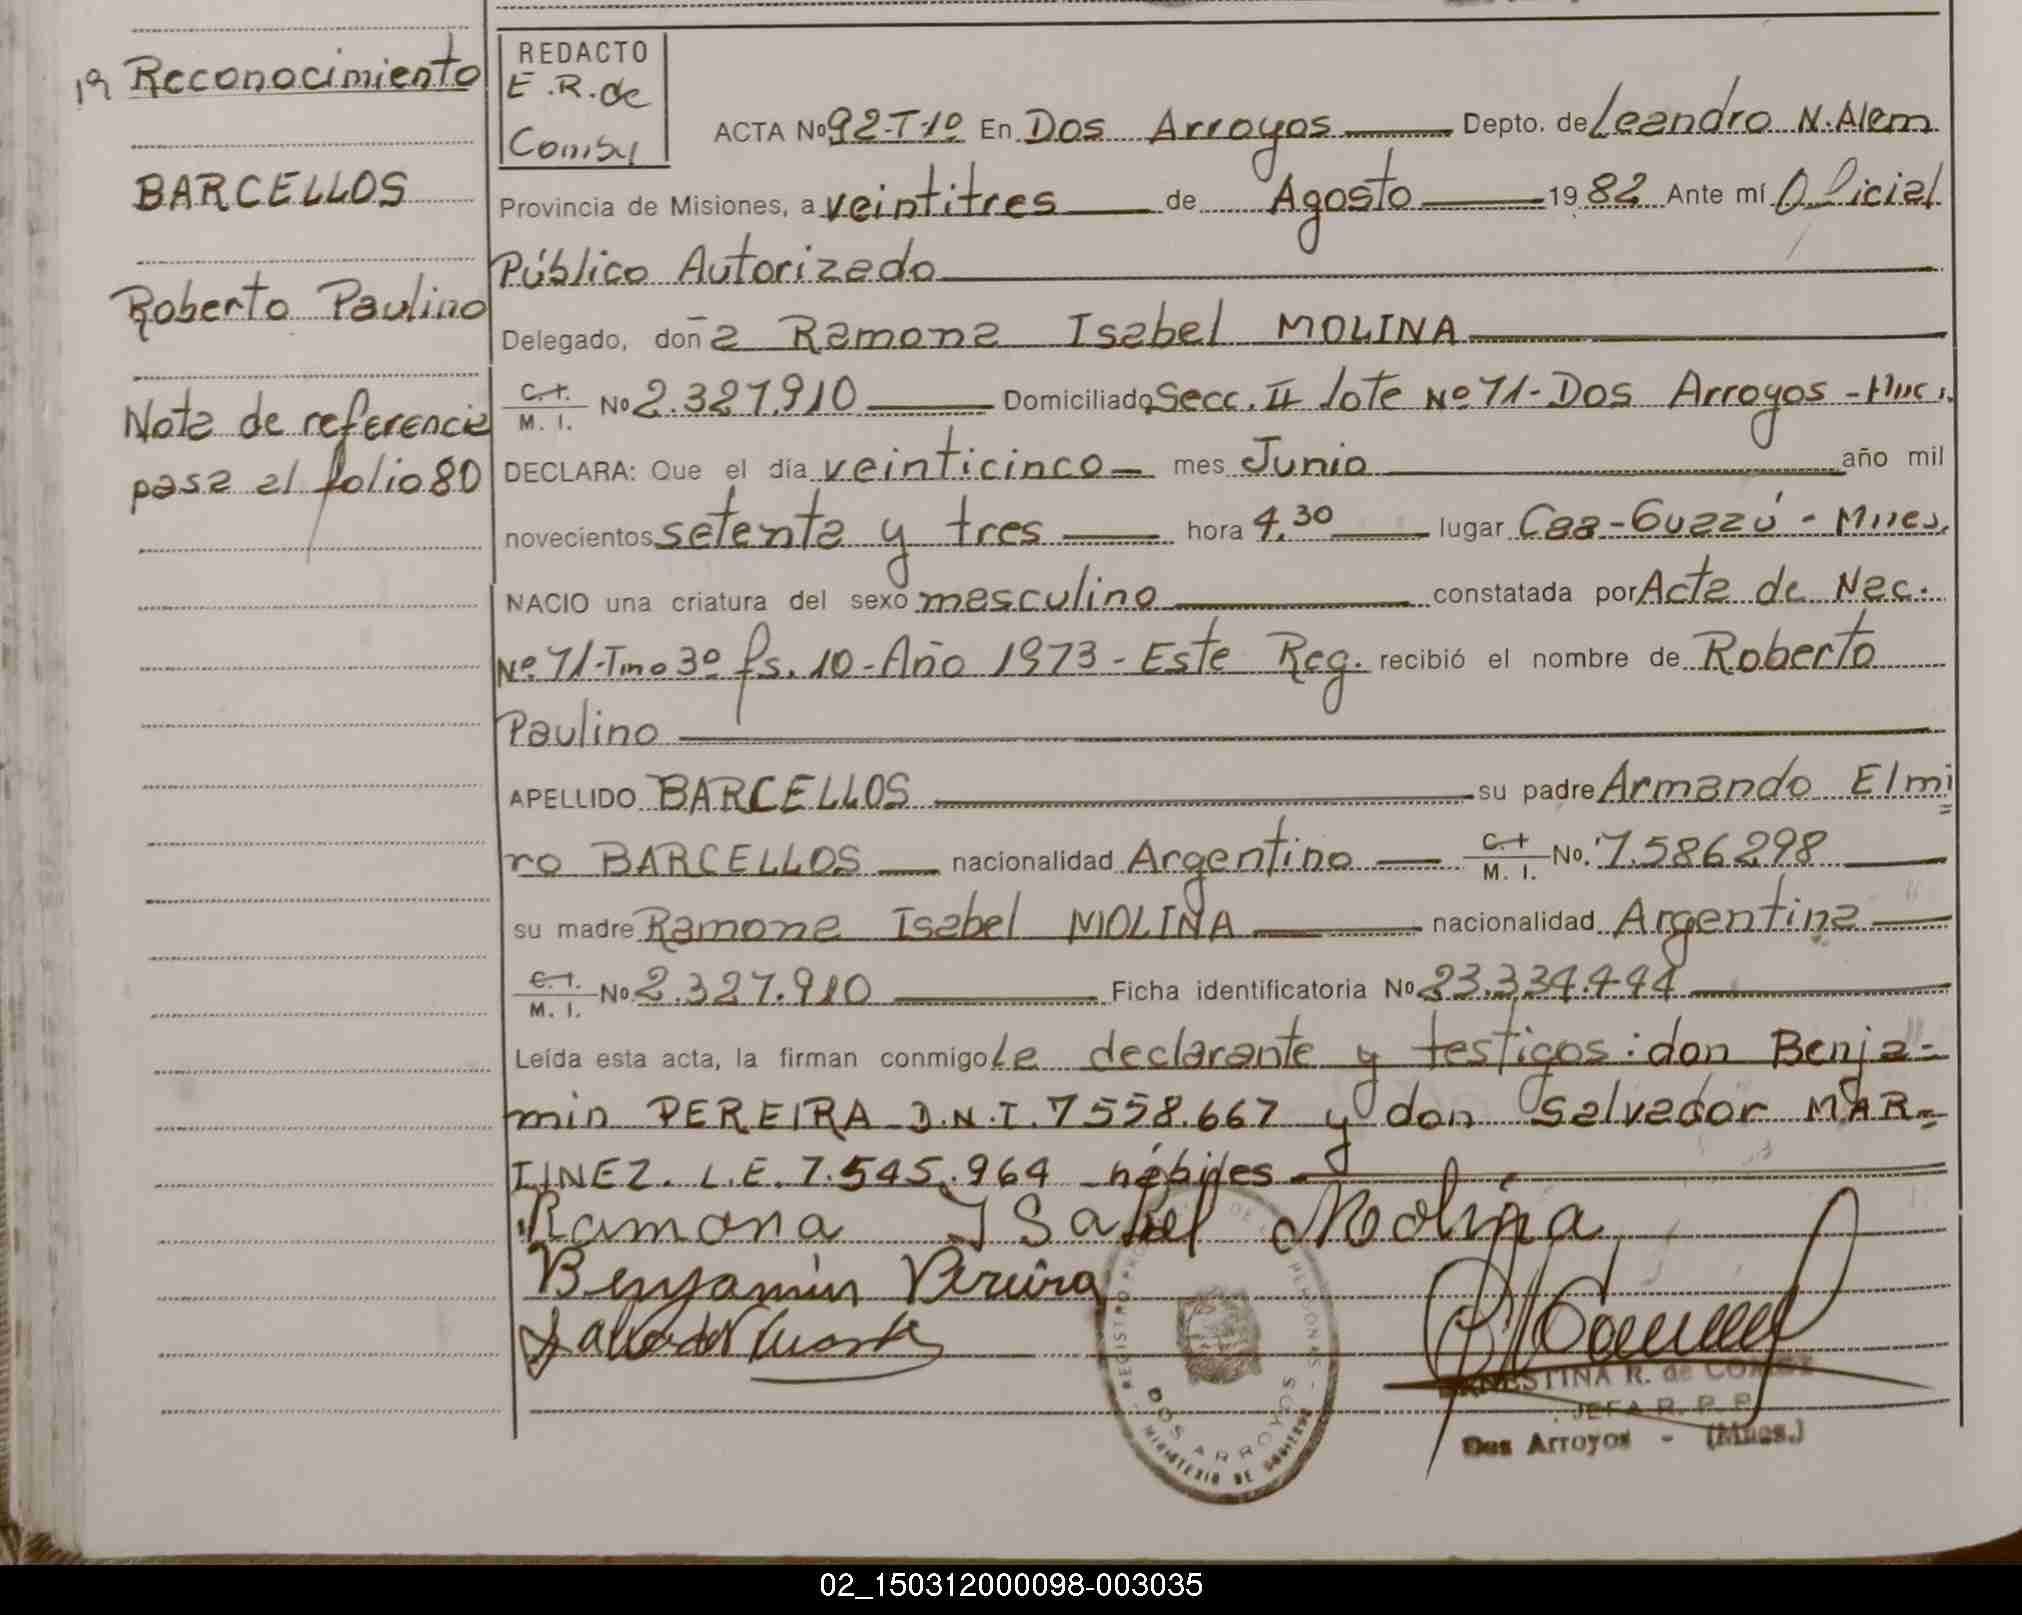 19 Reconocimiento
BARCELLOS
Roberto Paulino
Nota de referencia
pasa al folio 80
REDACTO
E.R. de
Comby
ACTA No 92-T-1º En Dos Arroyos Depto. de Leandro N. Alem
Provincia de Misiones, a veintitres de Agosto 1982 Ante mí Oficial
Público Autorizado
Delegado, doña Ramona Isabel MOLINA
C.I. M. I. No 2.327.910 Domiciliado Secc. II lote Nº 71-Dos Arroyos -
DECLARA: Que el día veinticinco mes Junio año mil
novecientos setenta y tres hora 4,30 lugar Caa-Guazú - Mnes.
NACIO una criatura del sexo masculino constatada por Acta de Nac.
Nº 71-Tmo 3º fs. 10-Año 1973-Este Reg. recibió el nombre de Roberto
Paulino
APELLIDO BARCELLOS su padre Armando Elmi
ro BARCELLOS nacionalidad Argentino C.I. M. I. No. 7.586.298
su madre Ramona Isabel MOLINA nacionalidad Argentina
C.I. M. I. No 2.327.910 Ficha identificatoria No 23.334.444
Leída esta acta, la firman conmigo la declarante y testigos: don Benja-
min PEREIRA D.N.I. 7558.667 y don Salvador MAR=
TINEZ. L.E. 7.545.964 hábiles
Ramona ISabel Molina
Benjamin Pereira
Salvador
REGISTRO DE LAS PERSONAS
DOS ARROYOS
MINISTERIO DE GOBIERNO
ERNESTINA R. de COMBY
JEFA R. P. P.
Dos Arroyos - (Mnes.)
02_150312000098-003035